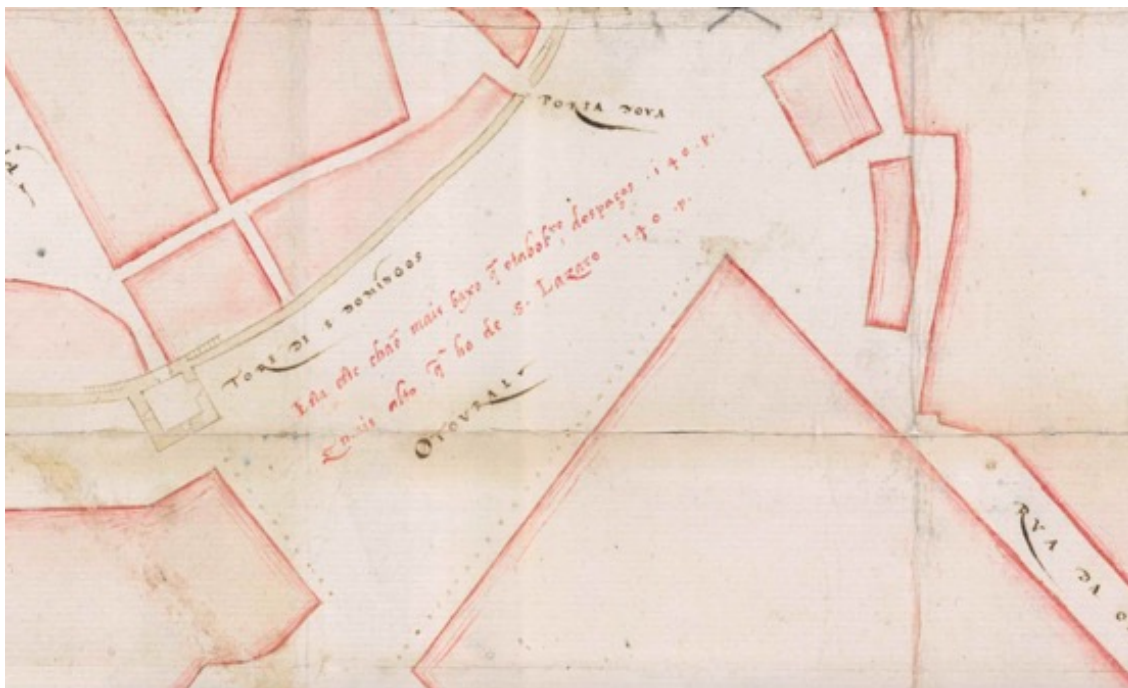 PORTA NOVA
TORE DE S DOMINGOS
Esta este chaõ mais baxo q̃ ho despaços .140.p.
E mais alto q̃ ho de s. Lazaro .140.p.
OTOURAL
RVA DA